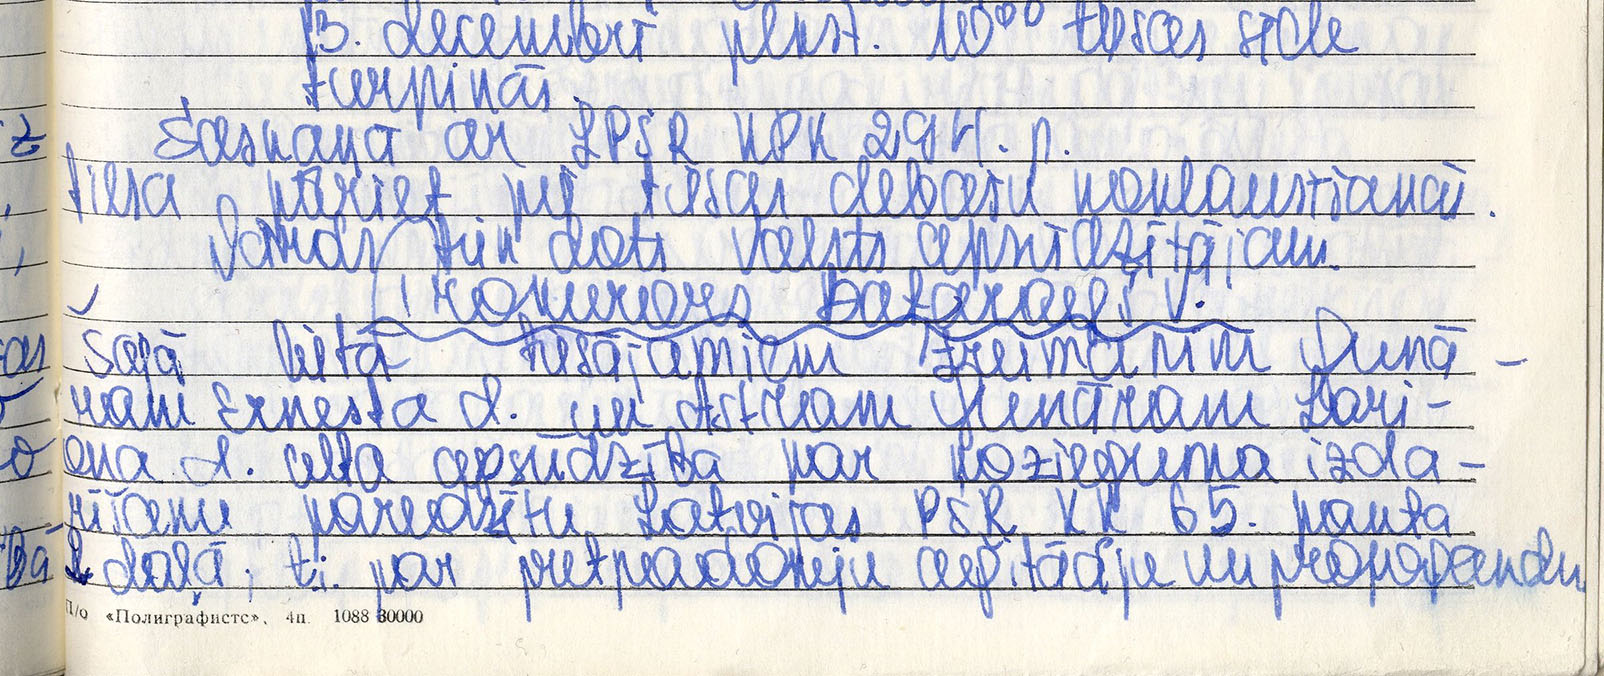 13. decembrī plkst. 10⁰⁰ tiesas sēde
turpinās.
Saskaņā ar LPSR KPK 294. p.
tiesa pāriet pie tiesas debašu noklausīšanās.
Vārds tiek dots valsts apsūdzētājam.
Prokurors Batarags V.
Šajā lietā tiesājamiem Freimanim Gunā-
ram Ernesta d. un Astram Gunāram Lari-
ona d. celta apsūdzība par nozieguma izda-
rīšanu paredzētu Latvijas PSR KK 65. panta
daļā, t.i. par pretpadomju aģitāciju un propagandu.
П/о «Полиграфистс», 4п. 1088 30000